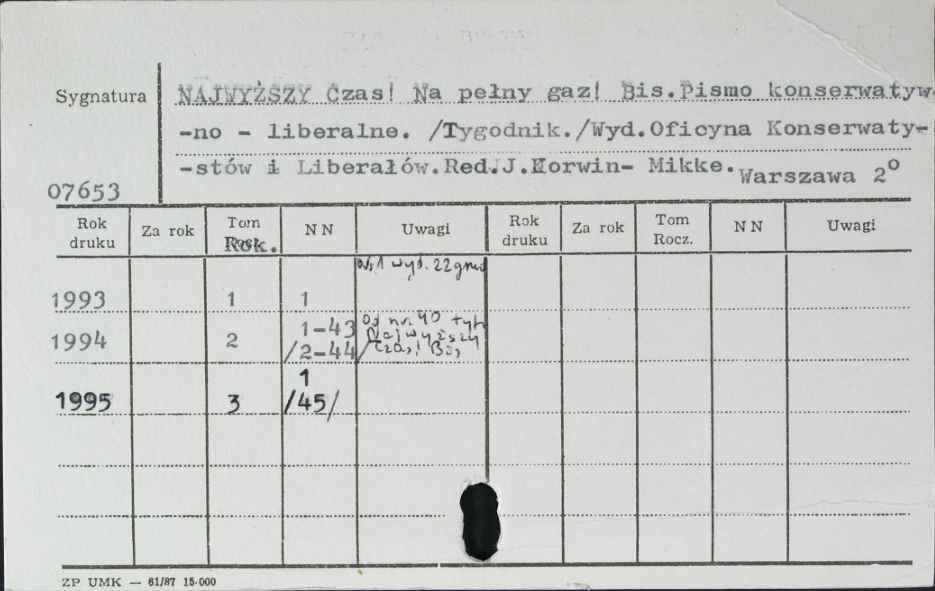 Sygnatura
NAJWYŻSZY Czas! Na pełny gaz! Bis.Pismo konserwatyw
-no - liberalne. /Tygodnik./Wyd.Oficyna Konserwaty-
-stów i Liberałów.Red.J.Korwin- Mikke.Warszawa 2°
07653
Rok druku Za rok Tom Rok. NN Uwagi Rok druku Za rok Tom Rocz. NN Uwagi
1993 1 1 Nr 1 wyd. 22 grud
1994 2 1-43 /2-44/ Od nr. 40 tyt. Najwyższy Czas! Bis,
1995 3 1 /45/
ZP UMK — 61/87 15.000